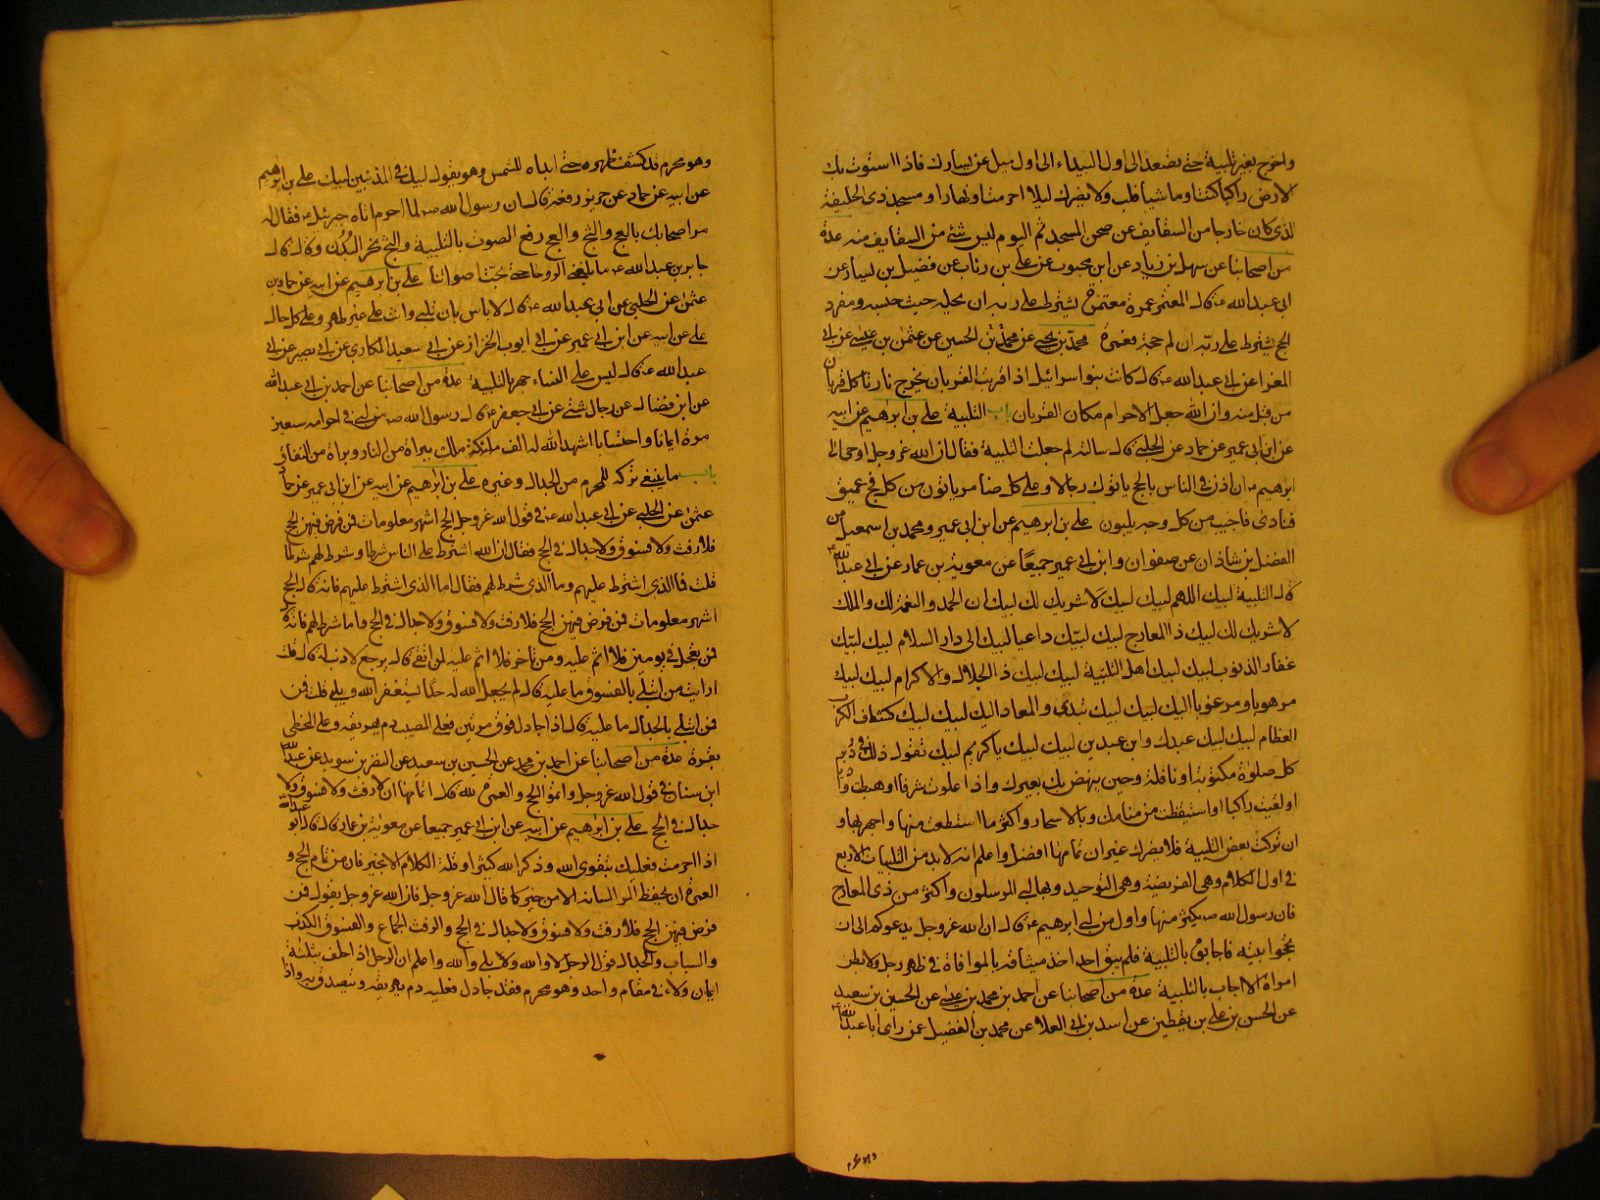 واخرج بغير تلبية حتى تصعد الى اول البيداء الى اول ميل عن يسارك فاذا استوت بك
الارض راكبا كنت او ماشيا فلب ولا يضرك ليلا احرمت او نهارا و مسجد ذى الحليفة
الذى كان خارجا من السقايف عن صحن المسجد ثم اليوم ليس شئ من السقايف منه عدة
من اصحابنا عن سهل بن زياد عن ابن محبوب عن على بن رئاب عن فضيل بن يسار عن
ابى عبد الله ع قال المعتمر عمرة مفردة يشترط على ربه ان يحله حيث حبسه ومفرد
الحج يشترط على ربه ان لم حجة فعمرة محمد بن يحيى عن محمد بن الحسين عن عثمن بن عيسى عن ابى
المغرا عن ابى عبد الله ع قال كانت بنو اسرائيل اذا قربت القربان يخرج نار تاكل قربان
من قبل منه وان الله جعل الاحرام مكان القربان باب التلبية على بن ابرهيم عن ابيه
عن ابن ابى عمير عن حماد عن الحلبى قال سالته لم جعلت التلبية فقال ان الله عز وجل اوحى الى
ابرهيم ان اذن فى الناس بالحج ياتوك رجالا وعلى كل ضامر ياتون من كل فج عميق
فنادى فاجيب من كل وجه يلبون على بن ابرهيم عن ابن ابى عمير ومحمد بن اسمعيل عن
الفضل بن شاذان عن صفوان وابن ابى عمير جميعا عن معوية بن عمار عن ابى عبد الله
قال التلبية لبيك اللهم لبيك لبيك لا شريك لك لبيك ان الحمد والنعمة لك والملك
لا شريك لك لبيك ذا المعارج لبيك لبيك داعيا لبيك الى دار السلام لبيك لبيك
غفار الذنوب لبيك لبيك اهل التلبية لبيك لبيك ذا الجلال والاكرام لبيك لبيك
مرهوبا ومرغوبا اليك لبيك لبيك تبدى والمعاد اليك لبيك لبيك كشاف الكرب
العظام لبيك لبيك عبدك وابن عبديك لبيك لبيك يا كريم لبيك تقول ذلك فى دبر
كل صلوة مكتوبة او نافلة وحين ينهض بك بعيرك واذا علوت شرفا او هبطت واديا
او لقيت راكبا او استيقظت من منامك وبالاسحار واكثر ما استطعت منها واجهر بها و
ان تركت بعض التلبية فلا يضرك غير ان تمامها افضل واعلم انه لا بد من التلبيات الاربع
فى اول الكلام وهى الفريضة وهى التوحيد وبها لبى المرسلون واكثر من ذى المعارج
فان رسول الله ص يكثر منها واول من لبى ابرهيم ع قال ان الله عز وجل يدعوكم الى ان
تحجوا بيته فاجابوه بالتلبية فلم يبق احد اخذ ميثاقه بالموافاة فى ظهر رجل ولا بطن
امراة الا اجاب بالتلبية عدة من اصحابنا عن احمد بن محمد بن عيسى عن الحسين بن سعيد
عن الحسن بن على بن يقطين عن اسد بن ابى العلا عن محمد بن الفضيل عن راى ابا عبد الله
وهو محرم
وهو محرم قد كشف ظهره حتى ابداه للشمس وهو يقول لبيك فى المذنبين لبيك على بن ابرهيم
عن ابيه عن حماد عن حريز رفعه قال ان رسول الله ص لما احرم اتاه جبرئيل ع فقال له
مر اصحابك بالعج والثج والعج رفع الصوت بالتلبية والثج نحر البدن وقال قال
جابر بن عبد الله ع ما بلغنا الروحا حتى بحت اصواتنا على بن ابرهيم عن ابيه عن حماد بن
عثمن عن الحلبى عن ابى عبد الله ع قال لا باس بان تلبى وانت على غير طهر وعلى كل حال
على عن ابيه عن ابن ابى عمير عن ابى ايوب الخزاز عن ابى سعيد المكارى عن ابى بصير عن ابى
عبد الله ع قال ليس على النساء جهر بالتلبية عدة من اصحابنا عن احمد بن ابى عبد الله
عن ابن فضال عن رجال شتى عن ابى جعفر ع قال رسول الله ص من لبى فى احرامه سبعين
مرة ايمانا واحتسابا اشهد الله له الف ملئكة ملك ببراة من النار وبراة من النفاق
باب ما ينبغى تركه للمحرم من الجدال وغيره على بن ابرهيم عن ابيه عن ابن ابى عمير عن حماد
عثمن عن الحلبى عن ابى عبد الله ع فى قول الله عز وجل الحج اشهر معلومات فمن فرض فيهن الحج
فلا رفث ولا فسوق ولا جدال فى الحج فقال ان الله اشترط على الناس شرطا وشرط لهم شرطا
قلت فما الذى اشترط عليهم وما الذى شرط لهم فقال اما الذى اشترط عليهم فانه قال الحج
اشهر معلومات فمن فرض فيهن الحج فلا رفث ولا فسوق ولا جدال فى الحج واما شرط لهم فانه قال
فمن تعجل فى يومين فلا اثم عليه ومن تاخر فلا اثم عليه لمن اتقى قال يرجع لا ذنب له قال قلت
ارايت من ابتلى بالفسوق ما عليه قال لم يجعل الله له حدا يستغفر الله ويلبى قلت فمن
فمن ابتلى بالجدال ما عليه قال اذا جادل فوق مرتين فعلى المصيب دم يهريقه وعلى المخطى
بقرة عدة من اصحابنا عن احمد بن محمد عن الحسين بن سعيد عن النضر بن سويد عن عبد الله
ابن سنان فى قول الله عز وجل واتموا الحج والعمرة لله قال اتمامها ان لا رفث ولا فسوق ولا
جدال فى الحج على بن ابرهيم عن ابيه عن ابن ابى عمير جميعا عن معوية بن عمار قال قال ابو عبد الله
اذا احرمت فعليك بتقوى الله وذكر الله كثيرا وقلة الكلام الا بخير فان من تمام الحج و
العمرة ان يحفظ المرء لسانه الا من خير كما قال الله عز وجل فان الله عز وجل يقول فمن
فرض فيهن الحج فلا رفث ولا فسوق ولا جدال فى الحج والرفث الجماع والفسوق الكذب
والسباب والجدال قول الرجل لا والله وبلى والله واعلم ان الرجل اذا حلف بثلثة
ايمان ولاء فى مقام واحد وهو محرم فقد جادل فعليه دم يهريقه ويتصدق به واذا